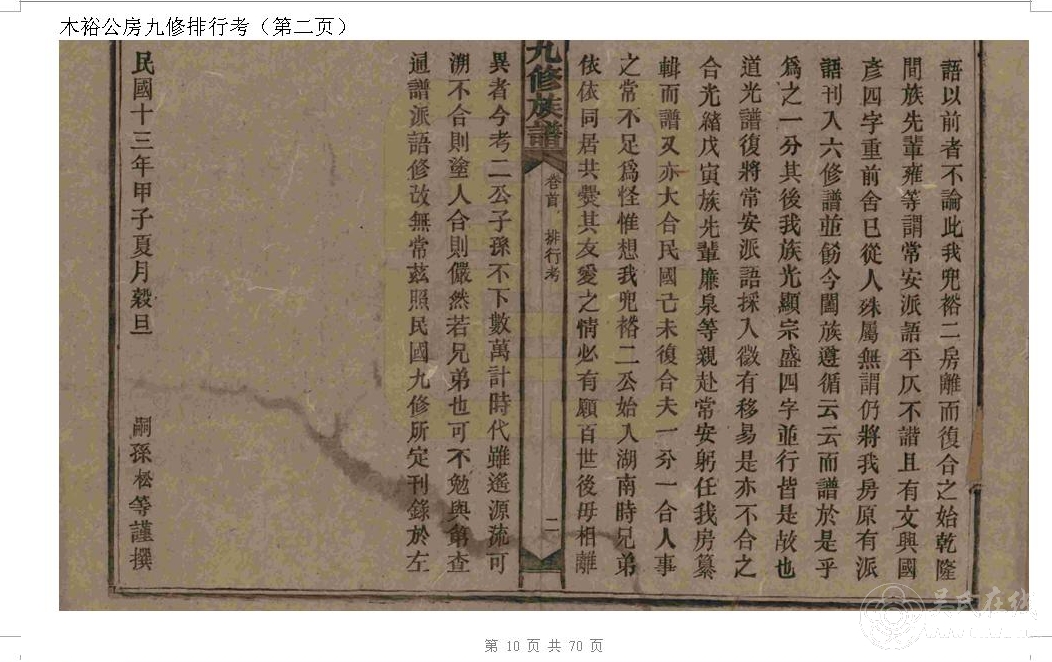 木裕公房九修排行考（第二页）
語以前者不論此我兜裕二房離而復合之始乾隆
間族先輩雍等謂常安派語平仄不諧且有文興國
彥四字重前舍已從人殊屬無謂仍將我房原有派
語刊入六修譜並飭今闔族遵循云云而譜於是乎
爲之一分其後我族光顯宗盛四字並行皆是故也
道光譜復將常安派語採入微有移易是亦不合之
合光緒戊寅族先輩廉泉等親赴常安躬任我房纂
輯而譜又亦大合民國己未復合夫一分一合人事
之常不足爲怪惟想我兜裕二公始入湖南時兄弟
依依同居共爨其友愛之情必有願百世後毋相離
九修族譜
卷首
排行考
二
異者今考二公子孫不下數萬計時代雖遙源流可
溯不合則塗人合則儼然若兄弟也可不勉與第查
通譜派語修改無常茲照民國九修所定刊錄於左
民國十三年甲子夏月穀旦
嗣孫松等謹撰
吴氏在线
第 10 页 共 70 页